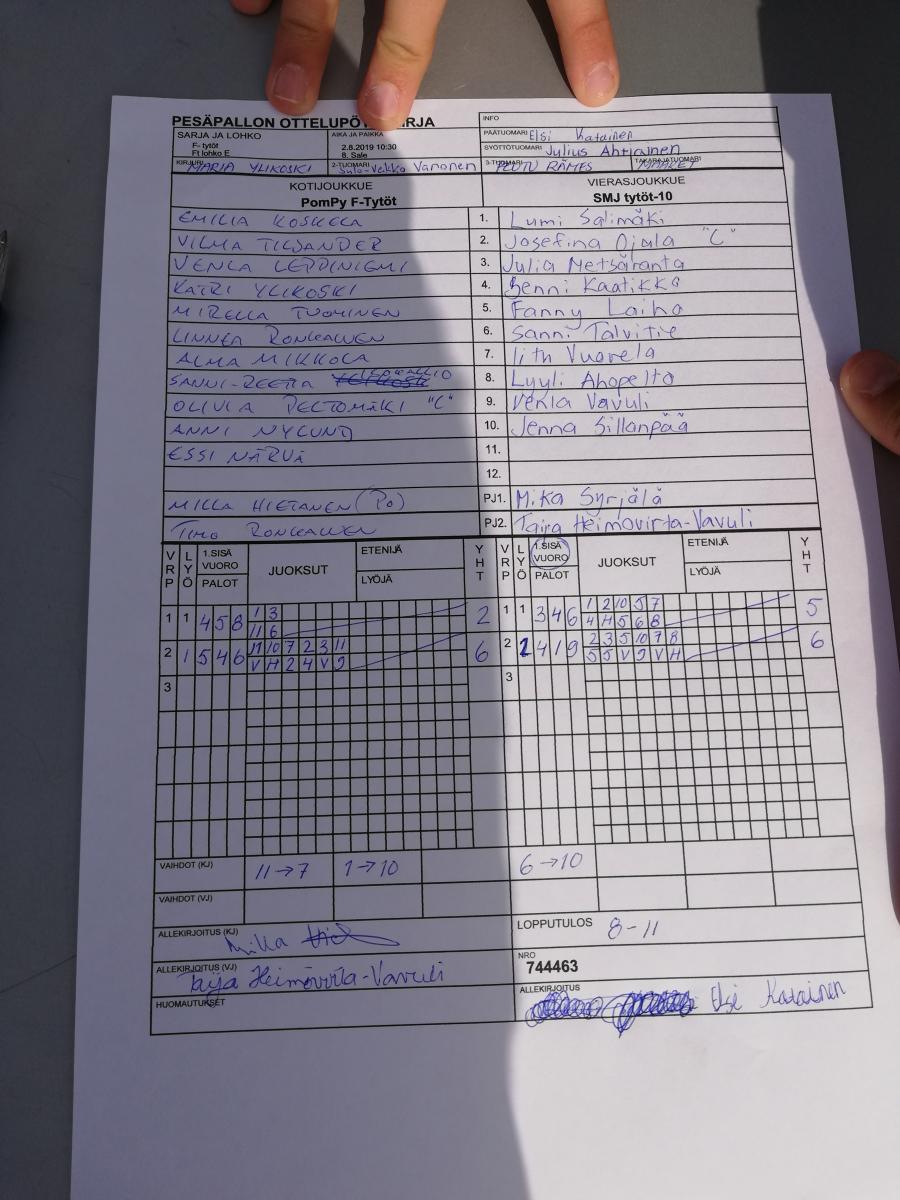 PESÄPALLON OTTELUPÖYTÄKIRJA
INFO
SARJA JA LOHKO
F- tytöt
Ft lohko E
AIKA JA PAIKKA
2.8.2019 10:30
8. Sale
PÄÄTUOMARI Elsi Katainen
SYÖTTÖTUOMARI Julius Ahtiainen
KIRJURI MARIA YLIKOSKI
2-TUOMARI Sulo-Veikko Vanonen
3-TUOMARI RÄMES
TAKARAJATUOMARI
KOTIJOUKKUE
PomPy F-Tytöt
VIERASJOUKKUE
SMJ tytöt-10
EMILIA KOSKELA 1. Lumi Salimäki
VILMA TILJANDER 2. Josefina Ojala "C"
VENLA LEPPINIEMI 3. Julia Metsäranta
KATRI YLIKOSKI 4. Senni Kaatikko
MIRELLA TUOMINEN 5. Fanny Laiho
LINNEA RONKAINEN 6. Sanni Talvitie
ALMA MIKKOLA 7. Iith Vuorela
SANNI-REETTA 8. Lyyli Ahopelto
OLIVIA PELTOMÄKI "C" 9. Venla Vavuli
ANNI NYLUND 10. Jenna Sillanpää
ESSI NÄRVÄ 11.
12.
MILLA HIETANEN (Po) PJ1. Mika Syrjälä
TIMO RONKAINEN PJ2. Taija Heimovirta-Vavuli
VRP LYÖ 1.SISÄ VUORO PALOT JUOKSUT ETENIJÄ LYÖJÄ YHT VRP LYÖ 1.SISÄ VUORO PALOT JUOKSUT ETENIJÄ LYÖJÄ YHT
1 1 4 5 8 1 3 2 1 1 3 4 6 1 2 10 5 7 5
11 6 4 H 5 6 8
2 1 5 4 6 11 10 7 2 3 11 6 2 1 4 1 9 2 3 5 10 7 8 6
V H 2 4 V 9 5 5 V 9 V H
3 3
VAIHDOT (KJ) 11→7 1→10 6→10
VAIHDOT (VJ)
ALLEKIRJOITUS (KJ) Milla
LOPPUTULOS 8-11
ALLEKIRJOITUS (VJ) Taija Heimovirta-Vavuli
NRO
744463
HUOMAUTUKSET
ALLEKIRJOITUS Elsi Katainen